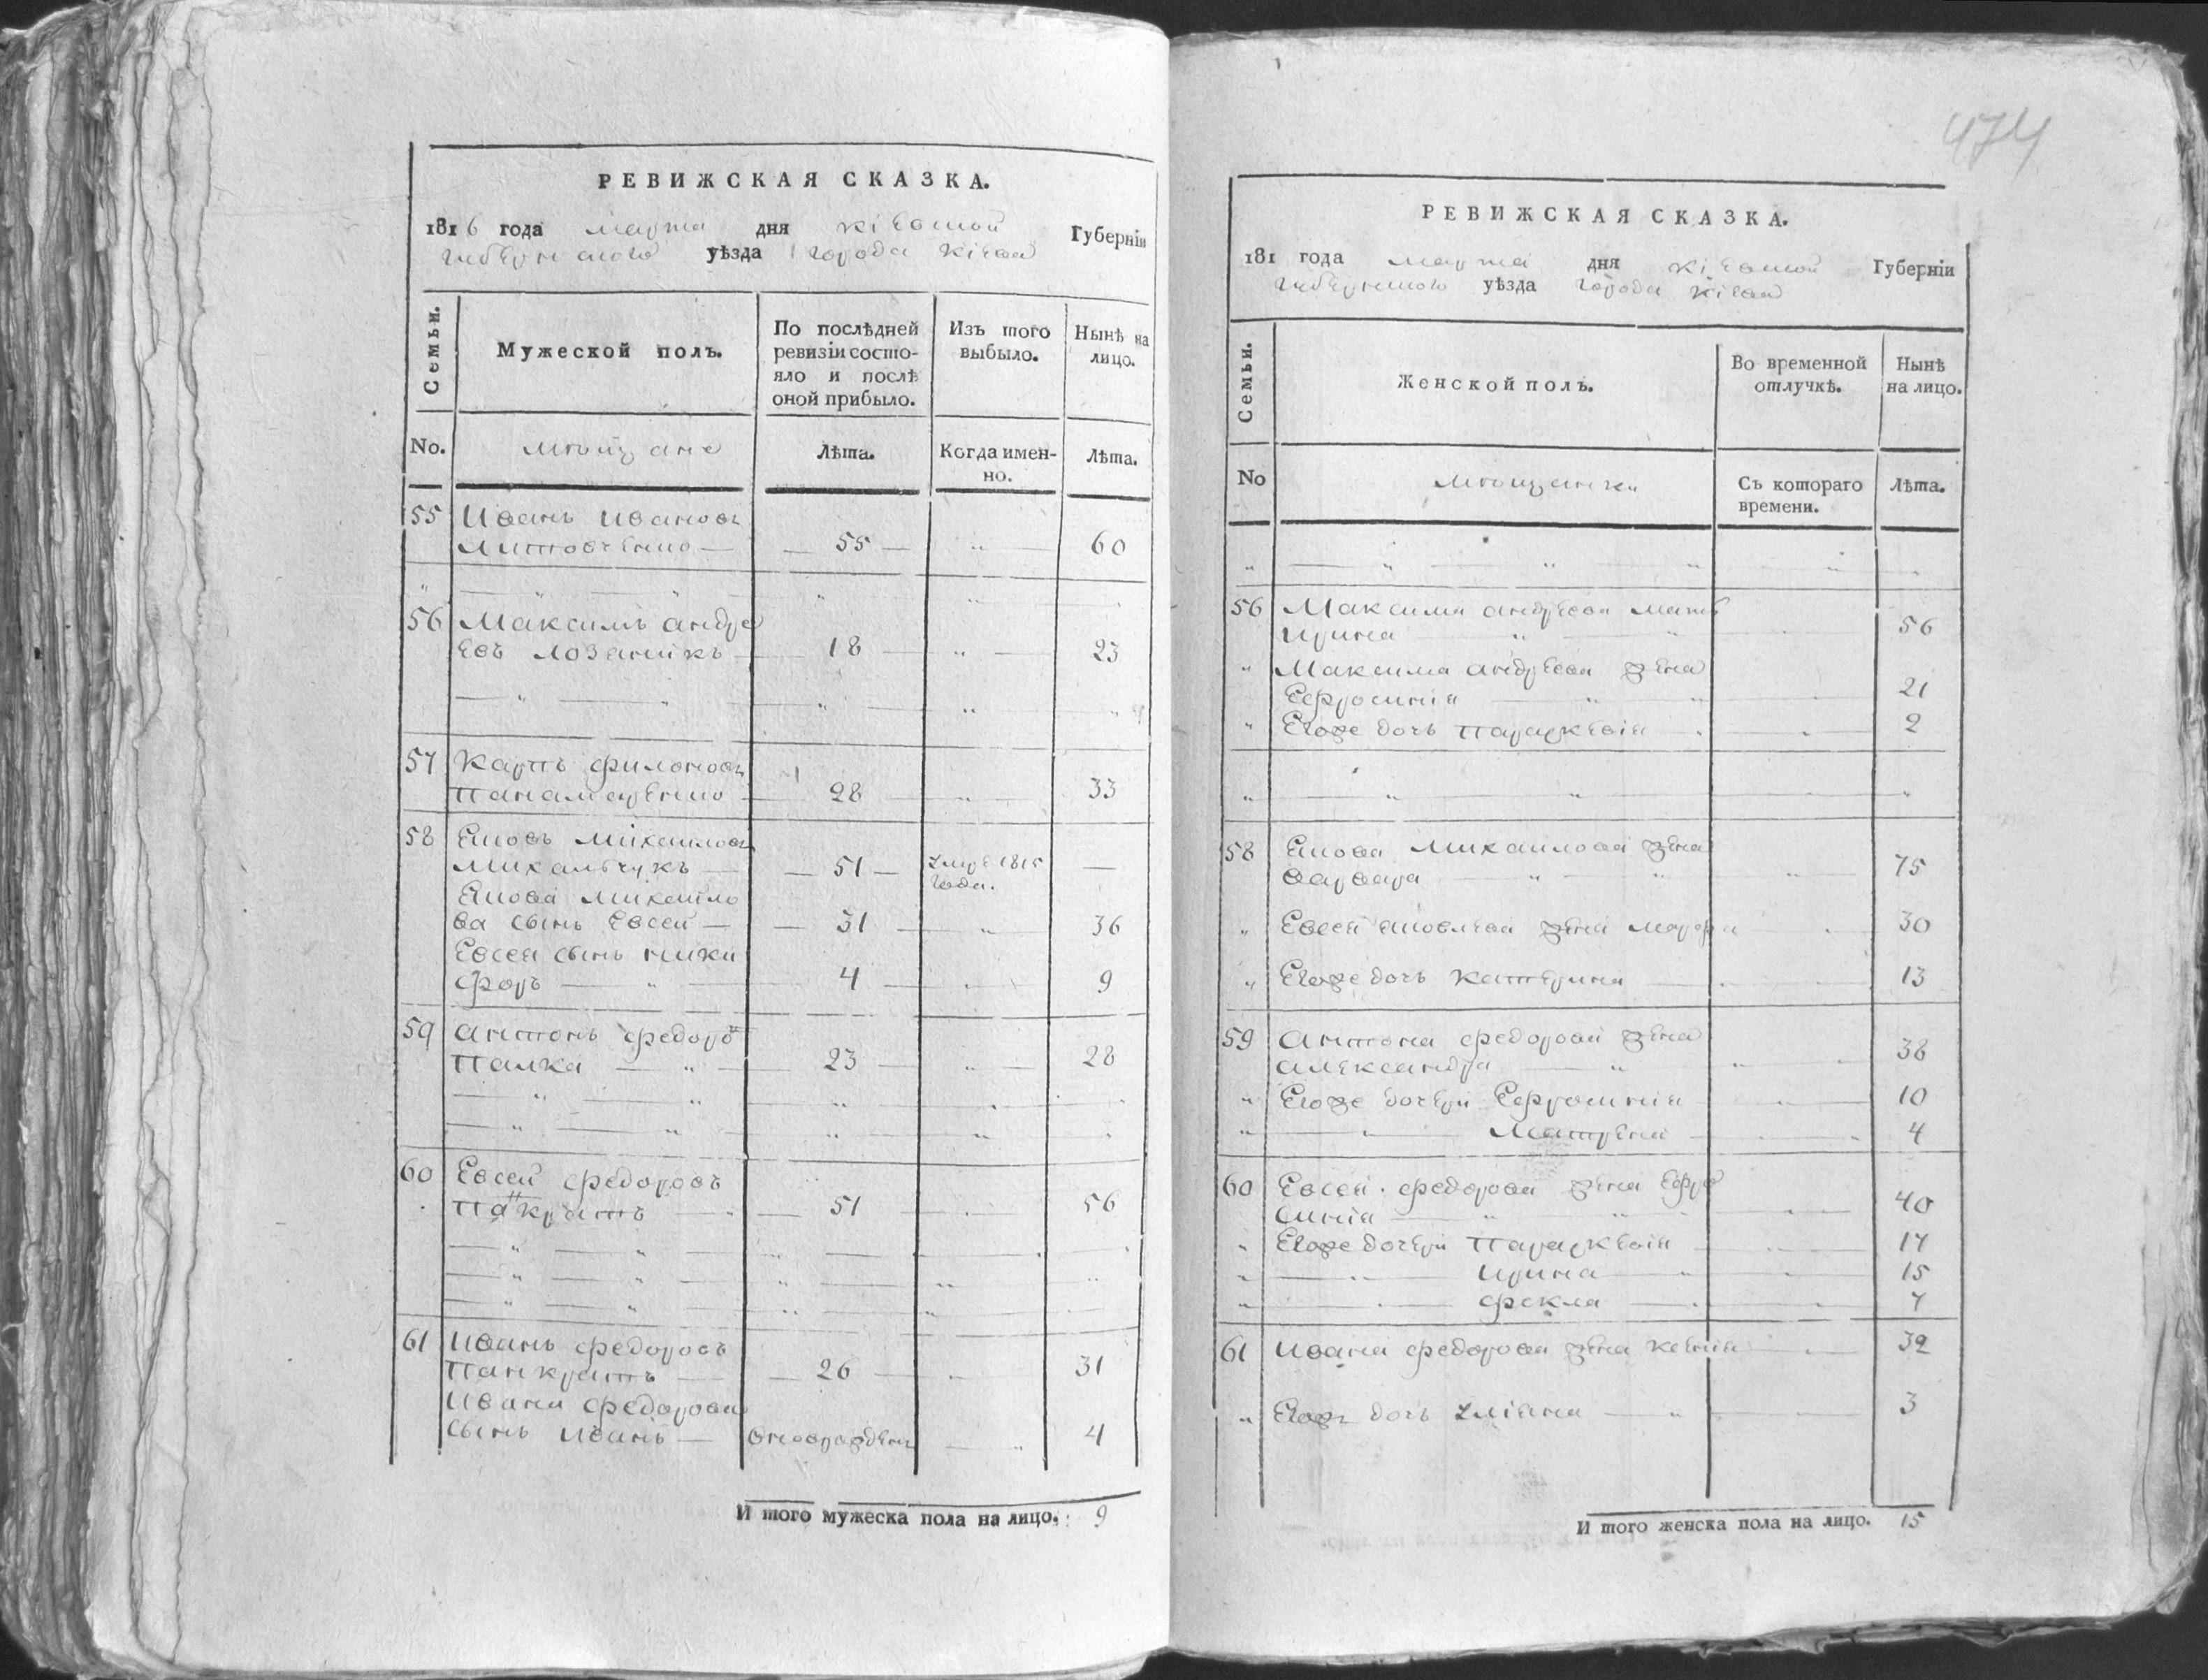 474
РЕВИЖСКАЯ СКАЗКА.
1816 года марта дня кіевской Губерніи
губернского уѣзда города Кіева
Семьи.
Мужеской полъ.
По послѣдней ревизіи состо-
яло и послѣ
оной прибыло.
Изъ того
выбыло.
Нынѣ на
лицо.
No.
мѣщане
Лѣта.
Когда имен-
но.
Лѣта.
55 Иванъ Ивановъ
Литовченко — 55 — 60
56 Максимъ андре
евъ Лозаникъ 18 23
57 Карпъ филоновъ
Панамаренко 28 33
58 Яковъ Михаиловъ
Михальчукъ — 51 — умре 1815 —
года.
Якова Михаило
ва сынъ Евсей — 31 36
Евсея сынъ ники
форъ — 4 9
59 антонъ федоро
Палка — 23 28
60 Евсей федоровъ
Панкратъ — 51 56
61 Иванъ федоровъ
Панкратъ — 26 31
Ивана федорова
сынъ Иванъ — новорожденъ 4
И того мужеска пола на лицо. 9
РЕВИЖСКАЯ СКАЗКА.
181 года марта дня кіевской Губерніи
губернского уѣзда города Кіева
Семьи.
Женской полъ.
Во временной
отлучкѣ.
Нынѣ
на лицо.
No
мѣщанки
Съ котораго
времени.
Лѣта.
56 Максима андреева мать
Ирина 56
Максима андреева жена
Ефросинія 21
Егоже дочь Параскевія 2
58 Якова Михаилова жена
варвара 75
Евсея яковлева жена Марфа 30
Егоже дочь Катерина 13
59 Антона федорова жена
александра 38
Егоже дочери Ефросинія 10
Матрена 4
60 Евсея федорова жена Ефро
синія 40
Егоже дочери Параскевія 17
Ирина 15
фекла 7
61 Ивана федорова жена Ксенія 32
Егоже дочь Уліяна 3
И того женска пола на лицо. 15